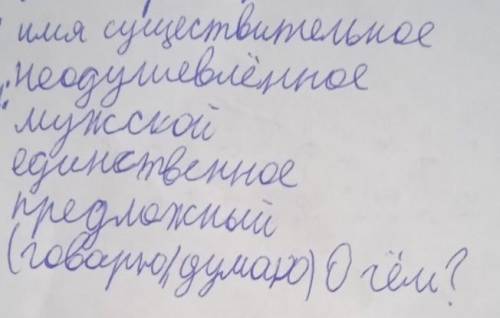 имя существительное
неодушевлённое
мужской
единственное
предложный
(говарю/думаю) О чём?